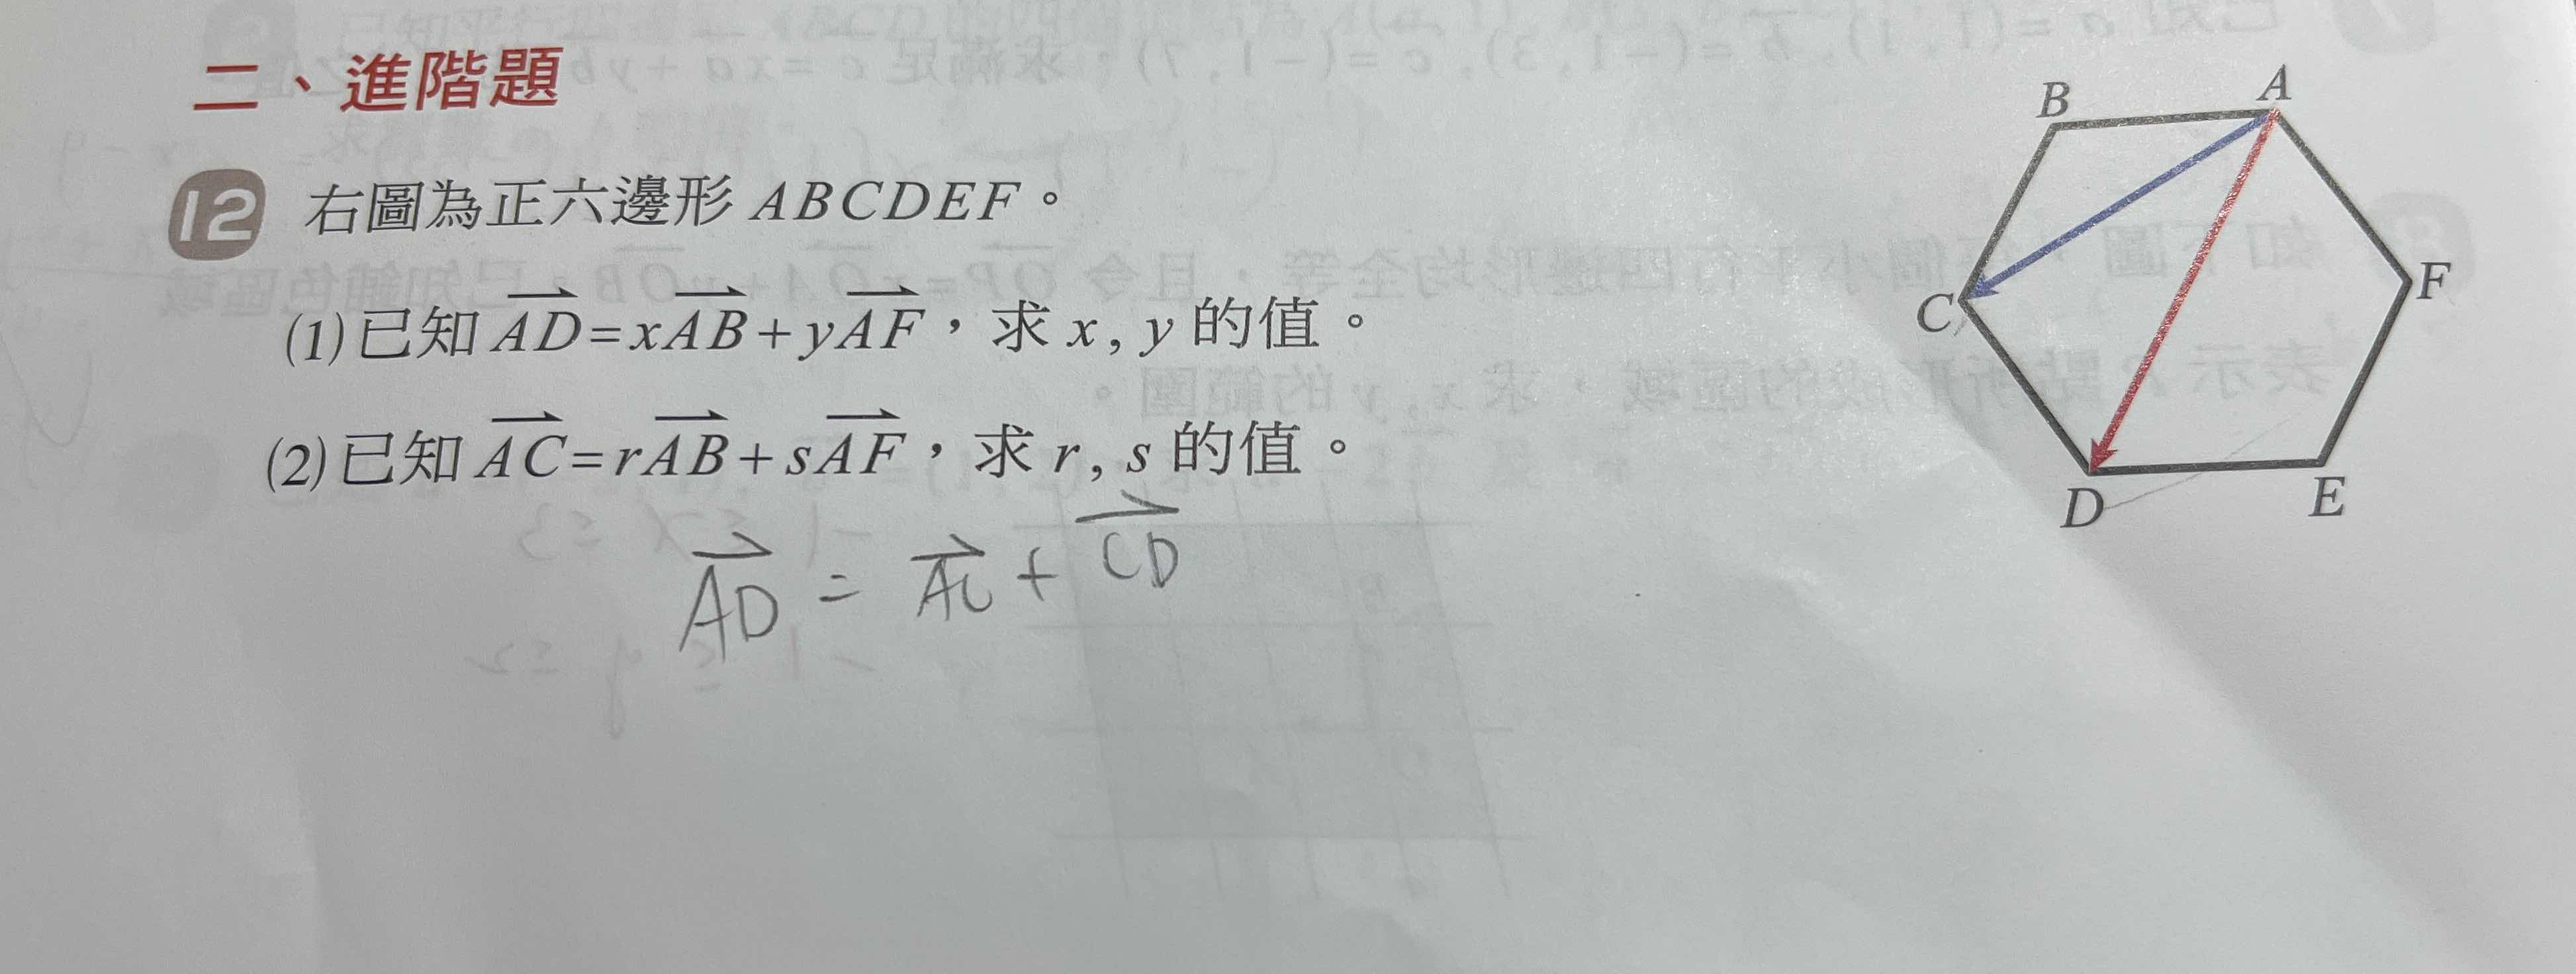 二、進階題
12 右圖為正六邊形 ABCDEF。
(1)已知 AD=xAB+yAF,求 x, y 的值。
(2)已知 AC=rAB+sAF,求 r, s 的值。
AD = AC + CD
A
B
C
D
E
F